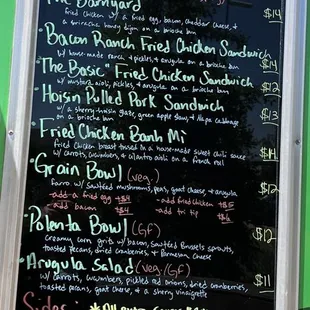 The Barnyard $14
fried chicken w/ a fried egg, bacon, cheddar cheese, +
a sriracha honey dijon on a brioche bun
Bacon Ranch Fried Chicken Sandwich $14
w/ house-made ranch + pickles + arugula on a brioche bun
The "Basic" Fried Chicken Sandwich $12
w/ mustard aioli, pickles, + arugula on a brioche bun
Hoisin Pulled Pork Sandwich $13
w/ a sherry-hoisin glaze, green apple slaw, + Napa cabbage
on a brioche bun
Fried Chicken Banh Mi $14
fried chicken breast tossed in a house-made sweet chili sauce
w/ carrots, cucumbers, + cilantro aioli on a french roll
Grain Bowl (veg.) $12
farro w/ sautéed mushrooms, peas, goat cheese, + arugula
- add a fried egg +$4 - add fried chicken +$5
- add bacon +$4 - add tri tip +$6
Polenta Bowl (GF) $12
creamy corn grits w/ bacon, sautéed brussels sprouts,
toasted pecans, dried cranberries, + Parmesan cheese
Arugula Salad (veg./GF) $11
w/ carrots, cucumbers, pickled red onions, dried cranberries,
toasted pecans, goat cheese, + a sherry vinaigrette
Sides